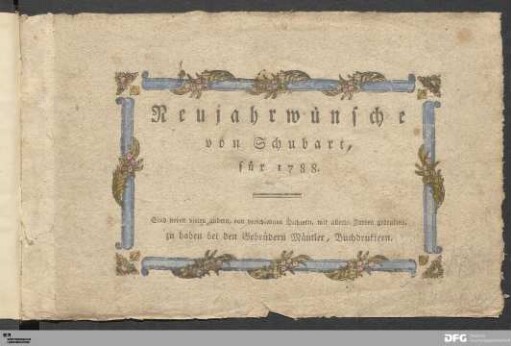 Neujahrwünsche
von Schubart,
für 1788.
Sind nebst vielen andern, von verschiedenen Dichtern, mit allerlei Farben gedrukten,
zu haben bei den Gebrüdern Mäntler, Buchdrukkern.
DFG